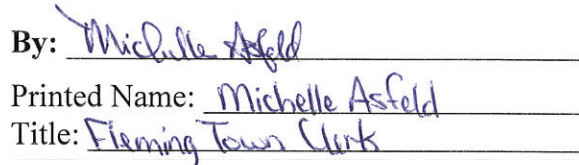 By: Michelle Asfeld
Printed Name: Michelle Asfeld
Title: Fleming Town Clerk